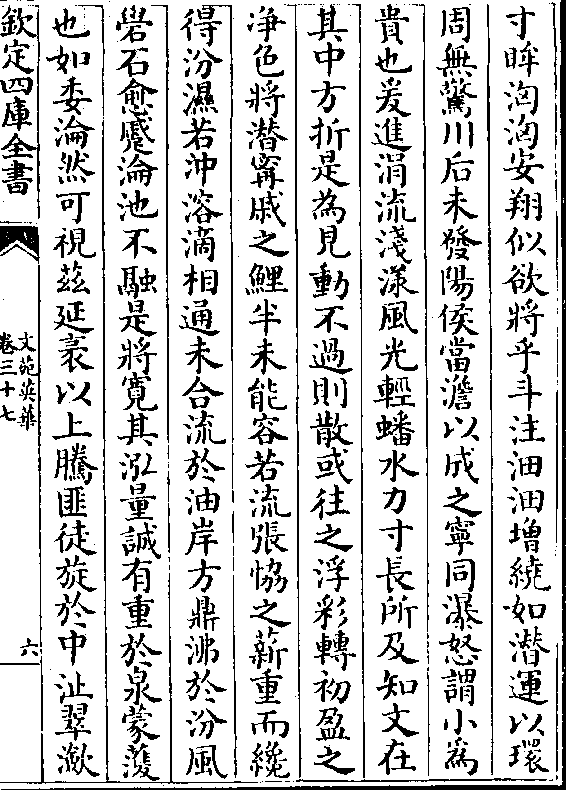 寸眸洶洶安翔似欲將乎斗注沺沺增繞如潛運以環
周無驚川后未發陽侯當澹以成之寧同瀑怒謂小為
貴也爰進涓流淺漾風光輕蟠水力寸長所及知文在
其中方折是為見動不過則散或往之浮彩轉初盈之
浄色將潜寗戚之鯉半未能容若流張恊之薪重而纔
得汾濕若沖溶滴相通未合流於油岸方鼎沸於汾風
礐石愈蹙淪池不融是將寛其泓量誠有重於泉蒙䕶
也如委淪然可視茲延袤以上騰匪徒旋於中沚翠瀲
欽定四庫全書
文苑英華
卷三十七
六